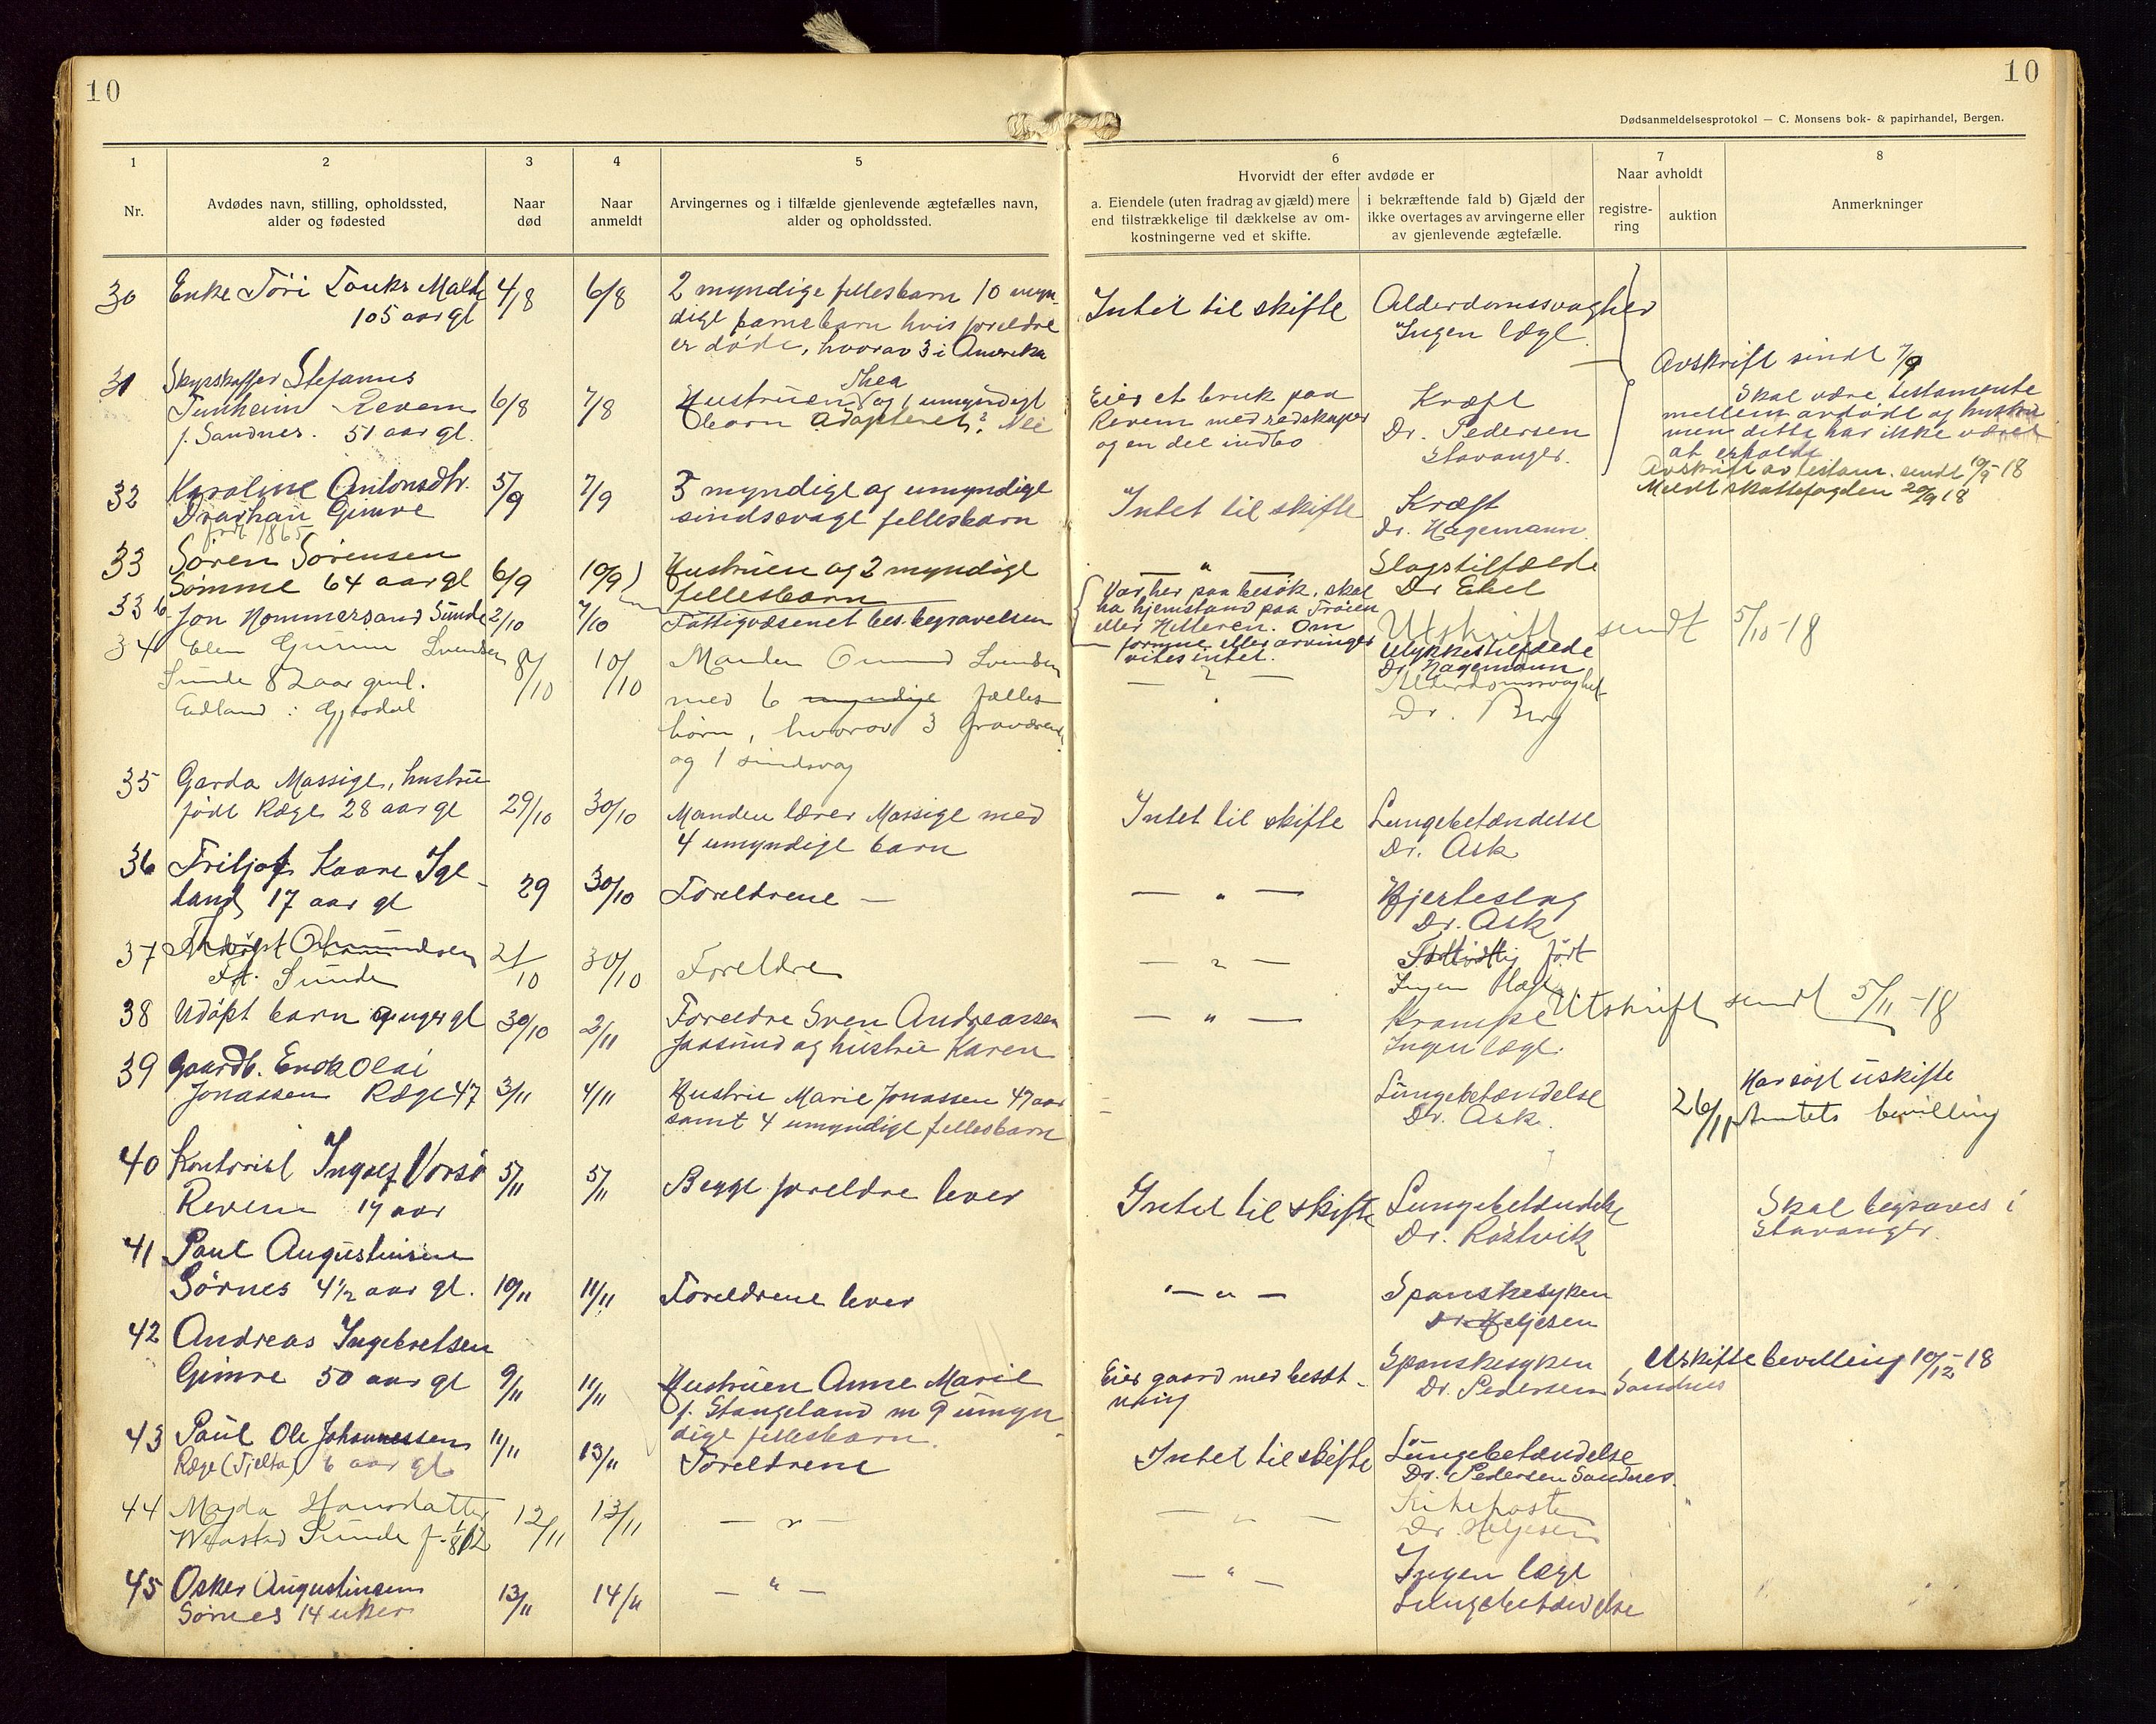 10
10
Dødsanmeldelsesprotokol — C. Monsens bok- & papirhandel, Bergen.
1
2
3
4
5
6
7
8
Nr.
Avdødes navn, stilling, opholdssted,
alder og fødested
Naar
død
Naar
anmeldt
Arvingernes og i tilfælde gjenlevende ægtefælles navn,
alder og opholdssted.
Hvorvidt der efter avdøde er
a. Eiendele (uten fradrag av gjæld) mere
end tilstrækkelige til dækkelse av om-
kostningerne ved et skifte.
i bekræftende fald b) Gjæld der
ikke overtages av arvingerne eller
av gjenlevende ægtefælle.
Naar avholdt
registre-
ring
auktion
Anmerkninger
30 Enke Töri 4/8 6/8 2 myndige fellesbarn 10 myn-
105 aar gl
dige barnebarn hvis foreldre
er döde, hvorav 3 i Amerika
Intet til skifte Alderdomssvaghet
Ingen læge
Avskrift sendt 7/9
31 Skysskaffer Stefanus
Tunheim Revem 6/8 7/8 Hustruen Thea og 1 umyndigt
f. Sandnes. 51 aar gl. barn Adopteret? Nei
Eier et bruk paa
Revem med redskaper
og en del indbo
Kræft
Dr. Pedersen
Stavanger.
Skal være testamente
mellem avdöde og hustru
men dette har ikke været
at erholde
Avskrift av testam. sendt 10/9-18
Meldt skattefogden 20/9 18
32 Karoline Antonsdtr. 5/9 7/9 3 myndige og umyndige
Gimre
födt 1865
sindssvage fellesbarn
Intet til skifte Kræft
Dr. Hagemann
33 Sören Sörensen
Sömme 64 aar gl 6/9 10/9 Hustruen og 2 myndige
fellesbarn
— " — Slagstilfælde
Dr Ebel
33 b Jon Hommersand Sunde 2/10 7/10 Fattigvæsenet bes. begravelsen
Var her paa besök, skal
ha hjemstand paa Tröien
eller Hitteren. Om
formue eller arvinger
vites intet.
Ulykkestilfælde
Dr. Hagemann
Utskrift sendt 5/10-18
34 Elen Gurine Svendsen 8/10 10/10 Manden Omund Svendsen
Sunde 82 aar gml.
Edland i Gjesdal
med 6 myndige fælles-
börn, hvorav 3 fraværende
og 1 sindsvag
— " — Alderdomssvaghet
Dr. Berg
35 Garda Massige, hustru
födt Ræge 28 aar gl 29/10 30/10 Manden lærer Massige med
4 umyndige barn
Intet til skifte Lungebetændelse
Dr. Ask
36 Fritjof Kaare Ige-
land 17 aar gl 29 30/10 Foreldrene —
— " — Hjerteslag
Dr. Ask
37 21/10 30/10 Foreldre
Sunde
— " — födt
Ingen læge
38 Udöpt barn gl 30/10 2/11 Foreldre Sven Andreassen
Jaasund og hustru Karen
— " — Krampe
Ingen læge.
Utskrift sendt 5/11-18
39 Gaardb. Enok Olai
Jonassen Ræge 47 3/11 4/11 Hustru Marie Jonassen 47 aar
samt 4 umyndige fellesbarn
Lungebetændelse
Dr. Ask.
26/11 Har sögt uskifte
Amtets bevilling
40 Kontorist Ingolf Vorsö 5/11 5/11 Begge foreldre lever
Revem 19 aar
Intet til skifte Lungebetændelse
Dr. Rostvik
Skal begraves i
Stavanger.
41 Paul Augustinsen
Sörnes 4½ aar gl. 10/11 11/11 Foreldrene lever
— " — Spanskesyken
Dr. Heljesen
42 Andreas Ingebretsen
Gimre 50 aar gl 9/11 11/11 Hustruen Anne Marie
f. Stangeland m 9 umyn-
dige fellesbarn.
Eier gaard med besæt-
ning
Spanskesyken
Dr. Pedersen Sandnes
Uskiftebevilling 10/12-18
43 Paul Ole Johannessen 11/11 13/11 Foreldrene
Ræge (Tjelta) 6 aar gl
Intet til skifte Lungebetændelse
Dr. Pedersen Sandnes.
44 Majda Hansdatter 12/11 13/11 — " —
Sunde f. 1/8 12
— " — Kikhoste
Dr. Heljesen
45 Osker Augustinsen 13/11 14/11 — " —
Sörnes 14 uker
— " — Ingen læge
Lungebetændelse